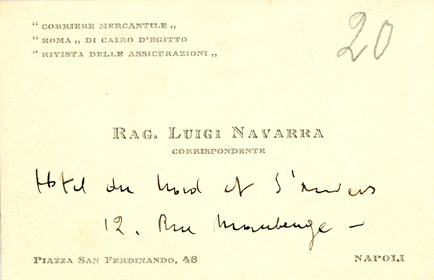 “ CORRIERE MERCANTILE „
“ ROMA „ DI CAIRO D'EGITTO
“ RIVISTA DELLE ASSICURAZIONI „
20
RAG. LUIGI NAVARRA
CORRISPONDENTE
Hotel du Nord et S'Anvers
12. Rue Maubeuge –
PIAZZA SAN FERDINANDO, 48
NAPOLI